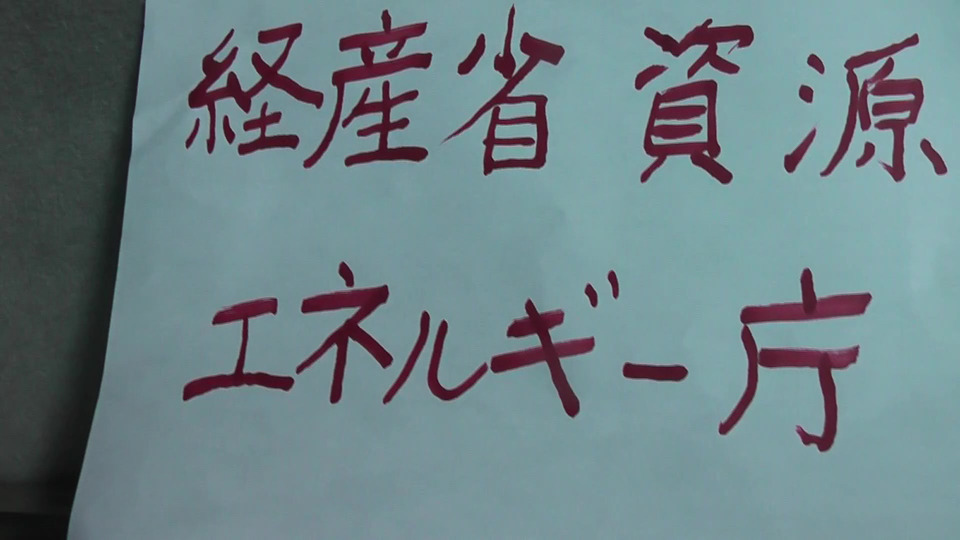 経産省 資源
エネルギー庁